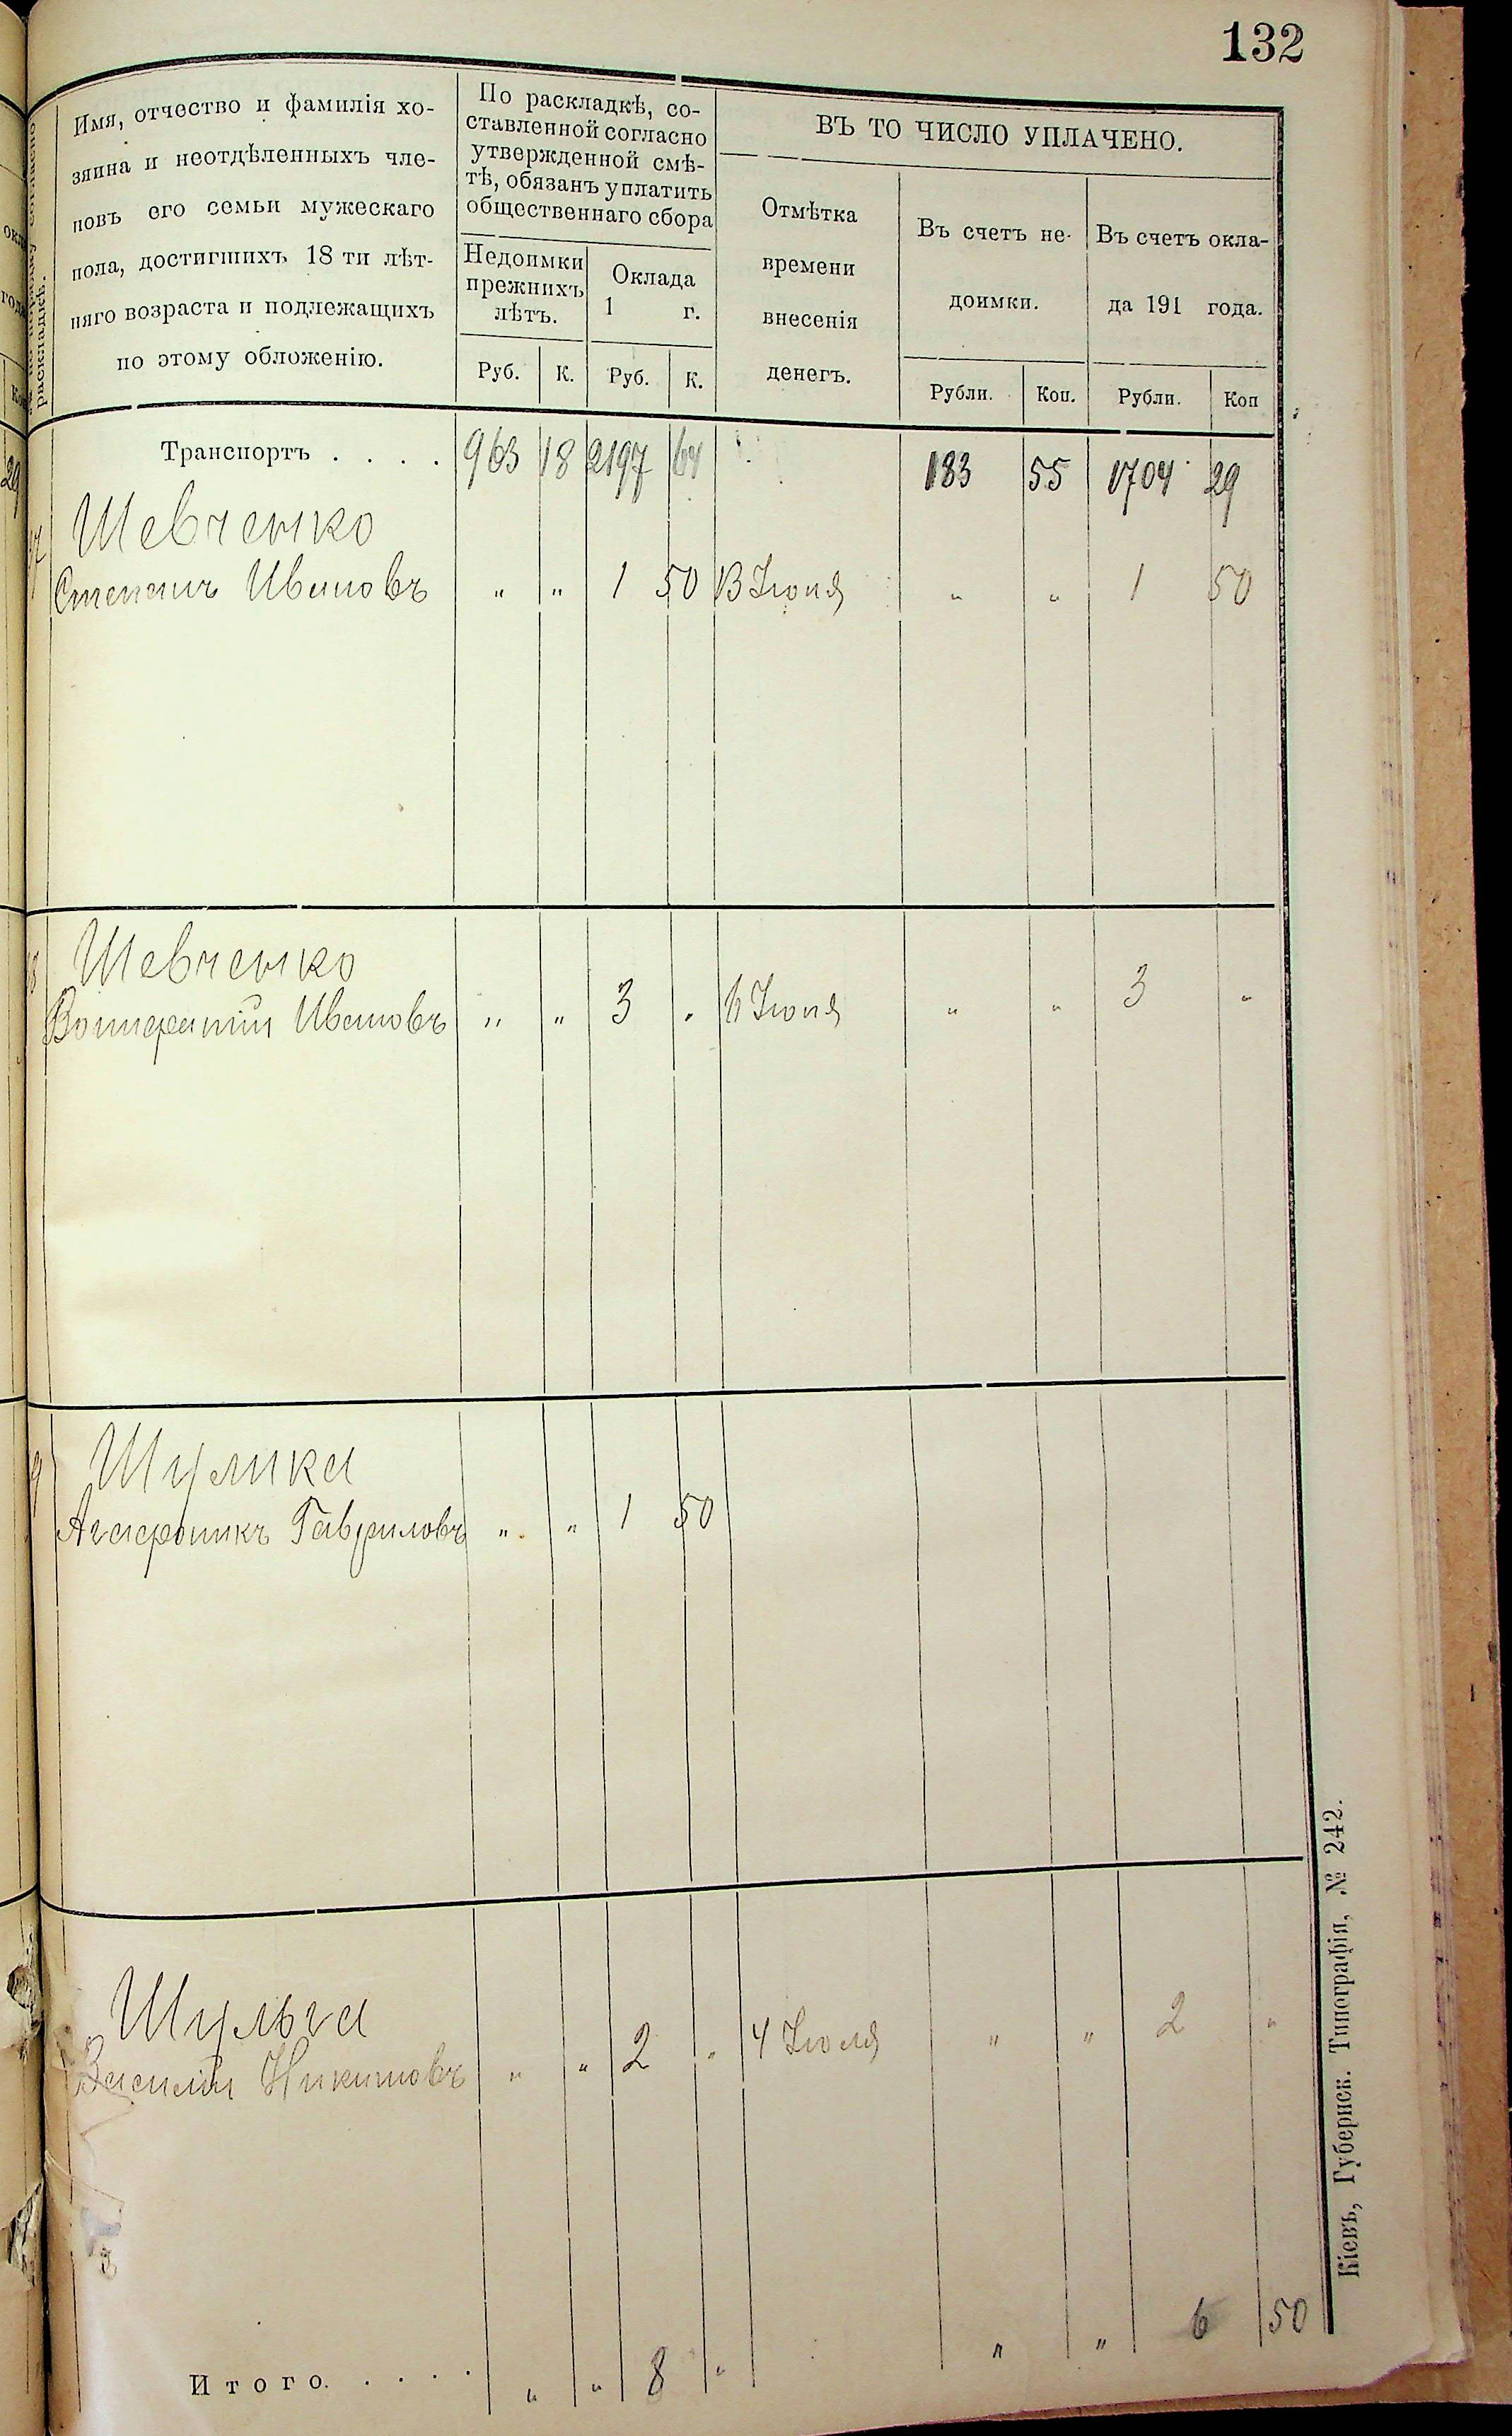 132
Имя, отчество и фамилія хо-
зяина и неотдѣленныхъ чле-
новъ его семьи мужескаго
пола, достигшихъ 18 ти лѣт-
няго возраста и подлежащихъ
по этому обложенію.
По раскладкѣ, со-
ставленной согласно
утвержденной смѣ-
тѣ, обязанъ уплатить
общественнаго сбора
Недоимки
прежнихъ
лѣтъ.
Оклада
1 г.
Руб. К. Руб. К.
ВЪ ТО ЧИСЛО УПЛАЧЕНО.
Отмѣтка
времени
внесенія
денегъ.
Въ счетъ не-
доимки.
Въ счетъ окла-
да 191 года.
Рубли. Коп. Рубли. Коп
Транспортъ . . . . 963 18 2197 64 183 55 1704 29
Шевченко
Степанъ Ивановъ " " 1 50 13 Іюня " " 1 50
Шевченко
Вонифатій Ивановъ " " 3 " 6 Іюня " " 3 "
Шулика
Агафоникъ Гавриловъ " " 1 50
Шульга
Василій Никитовъ " " 2 " 4 Іюля " " 2 "
Итого. . . . . " " 8 " " " 6 50
Кіевъ, Губернск. Типографія, № 242.